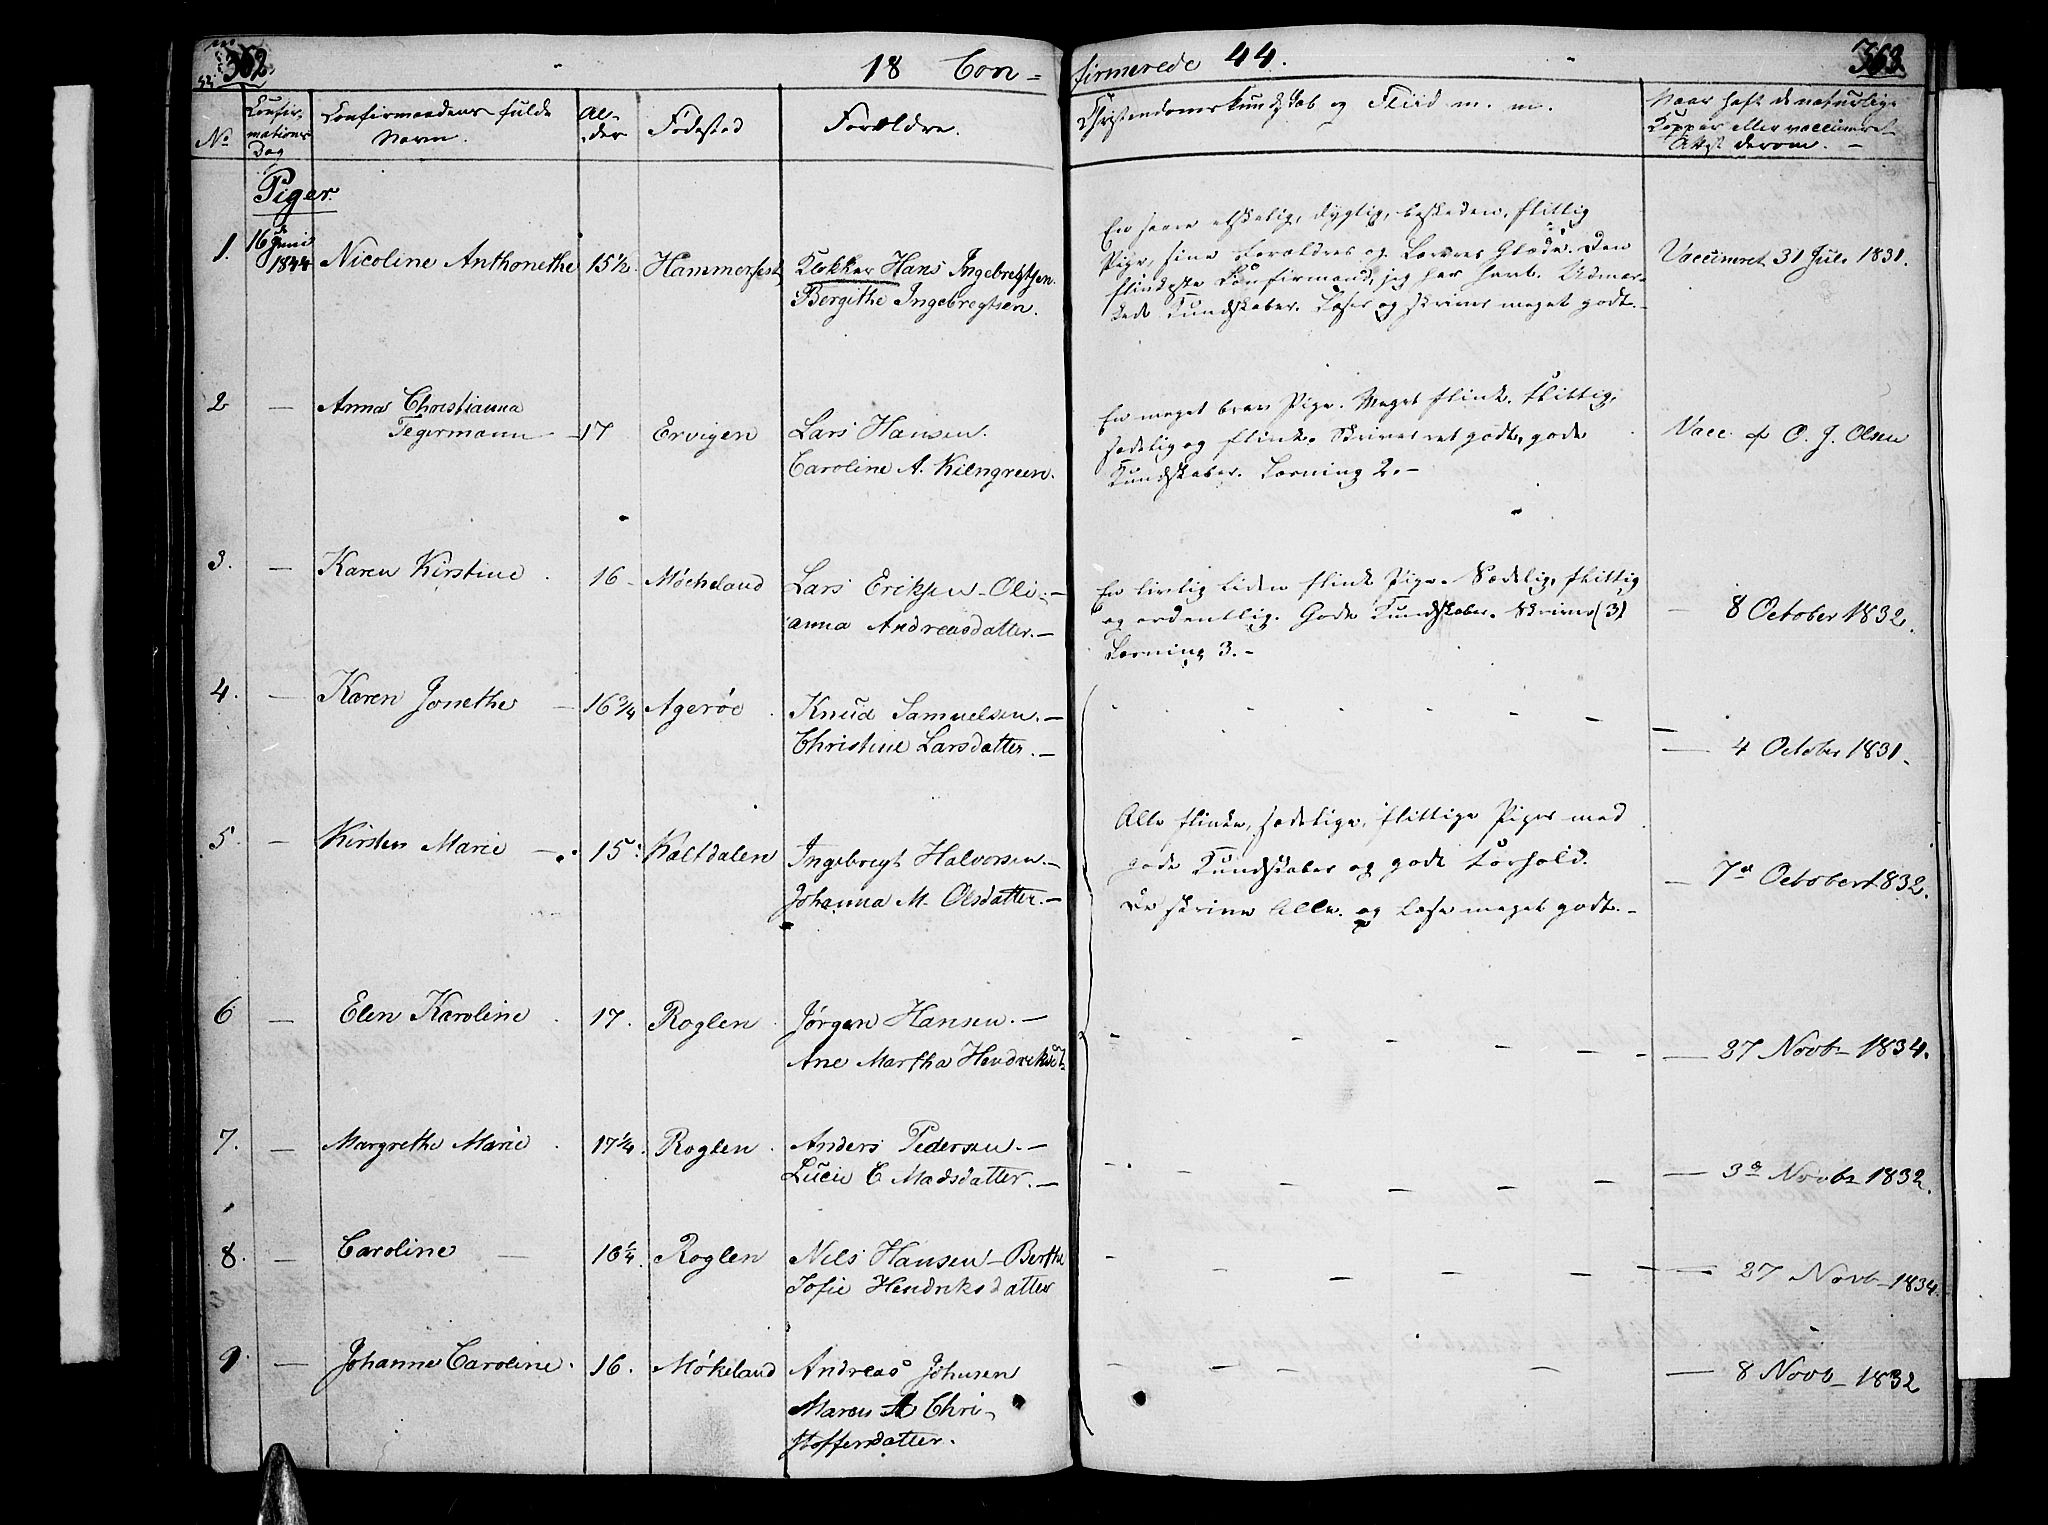 362. 18 Con- firmerede 44. 363
No Confir-mations Dag Confirmandens fulde Navn. Al-der Fødested Forældre. Christendomskundskab og Fliid m. m. Naar haft de naturlige Kopper eller vaccineret Attest derom. -
Piger.
1. 16de Juni 1844 Nicoline Anthonethe 15½ Hammerfest Klokker Hans Ingebregtsen. Bergithe Ingebregtsen.
En saare elskelig, dygtig, beskeden, flittig
Pige, sine Forældres og Læreres Glæde. Den
flinkeste Confirmand, jeg har havt. Udmær-
kede Kundskaber. Læser og skriver meget godt. -
Vaccineret 31 Jul. 1831.
2 — Anna Christianna Tegermann — 17 Ervigen Lars Hansen. Caroline A. Kilengreen.
En meget brav Pige. Meget flink. flittig,
sædelig og flink. Skriver ret godt, gode
Kundskaber. Læsning 2. -
Vacc. af O. J. Olsen
3. — Karen Kirstine . 16 - Møcheland Lars Eriksen - Oli-anna Andreasdatter. -
En livlig liden flink Pige. Sædelig, flittig
og ordentlig. Gode Kundskaber. Skriver (3)
Læsning 3. -
— 8 October 1832.
4. — Karen Jonethe — 16 3/4 Agerøe Knud Samuelsen. - Christine Larsdatter. -
— 4 October 1831.
5. — Kirsten Marie — 15 Kaltdalen Ingebregt Halvorsen. - Johanna M. Olsdatter. -
Alle flinke, sædelige, flittige Piger med
gode Kundskaber og godt Forhold.
De skrive Alle og læse meget godt. -
— 7de October 1832.
6 — Elen Karoline . 17. Roglen Jørgen Hansen. - Ane Martha Hendriksdt.
— 27 Novbr 1834.
7. — Margrethe Marie . 17¼. Roglen. Anders Pedersen. - Lucie C Madsdatter. -
— 3de Novbr 1832.
8. — Caroline — 16¼. Roglen Nils Hansen - Berthe Sofie Hendriksdatter
— 27 Novb. 1834.
9. — Johanne Caroline. 16. Møkeland Andreas Johnsen Maren A Chri-stoffersdatter.
— 8 Novb. 1832